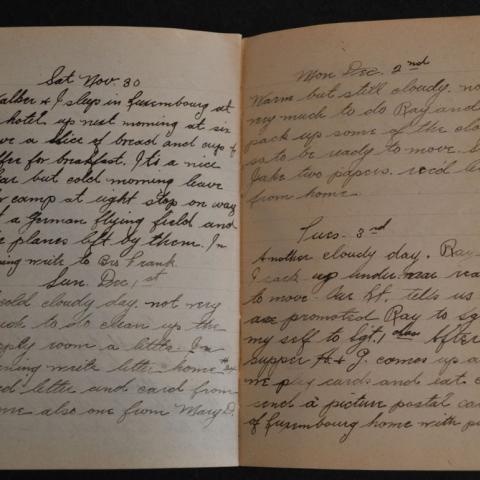 Sat Nov. 30
Walber & I sleep in Luxembourg at
hotel, up next morning at six
ve a slice of bread and cup of
ffee for breakfast. It's a nice
ear but cold morning leave
r camp at eight stop on way
t a German flying field and
e planes left by them. In
ning write to Bro Frank.
Sun. Dec, 1st
cold cloudy day. not very
uch to do clean up the
pply room a little. In
ening write letter home #34
d letter and card from
me also one from Mary D.
Mon Dec. 2nd
Warm but still cloudy. no
very much to do Ray and
pack up some of the clo
so to be ready to move. S
Jake two papers. rec'd le
from home.
Tues. 3rd
Another cloudy day. Ray
I pack up under wear rea
to move. Our Lt. tells us
are promoted Ray to sg
my self to Sgt. 1 class After
supper H. & G. comes up a
we play cards and eat c
send a picture postal ca
of Luxembourg home with p